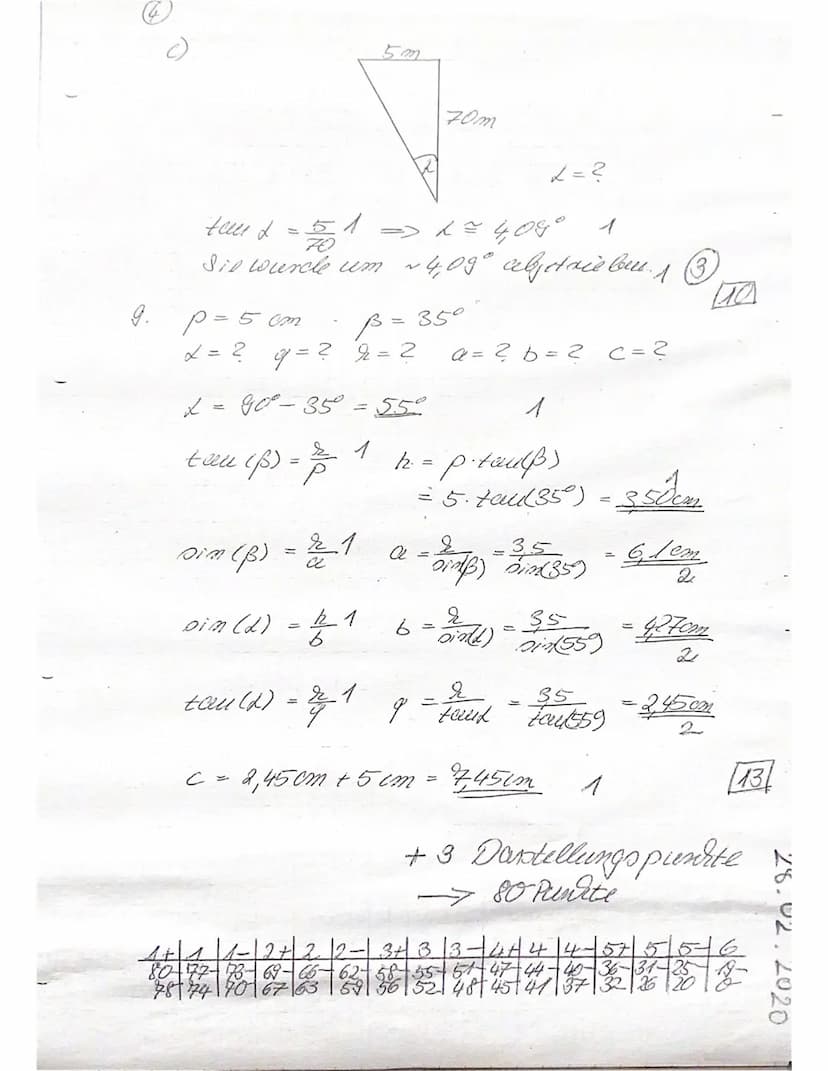 ④
c)
5m
70m
α
α = ?
tan α = 5/70 1 ⇒ α ≅ 4,09° 1
Sie wurde um ~4,09° abgetrieben. 1 ③
10
9. p = 5 cm β = 35°
α = ? q = ? h = ? a = ? b = ? c = ?
α = 90° - 35° = 55° 1
tan(β) = h/p 1 h = p·tan(β)
= 5·tan(35°) = 3,50cm 1
sin(β) = h/a 1 a = h/sin(β) = 3,5/sin(35°) = 6,1cm 2
sin(α) = h/b 1 b = h/sin(α) = 3,5/sin(55°) = 4,27cm 2
tan(α) = h/q 1 q = h/tanα = 3,5/tan(55°) = 2,45cm 2
c = 2,45cm + 5cm = 7,45cm 1 13
+ 3 Darstellungspunkte
→ 80 Punkte
1+ | 1 | 1- | 2+ | 2 | 2- | 3+ | 3 | 3- | 4+ | 4 | 4- | 5+ | 5 | 5- | 6
80- | 77- | 73- | 69- | 66- | 62- | 58- | 55- | 51- | 47- | 44- | 40- | 36- | 31- | 25- | 19-
78 | 74 | 70 | 67 | 63 | 59 | 56 | 52 | 48 | 45 | 41 | 37 | 32 | 26 | 20 | 0
28.02.2020